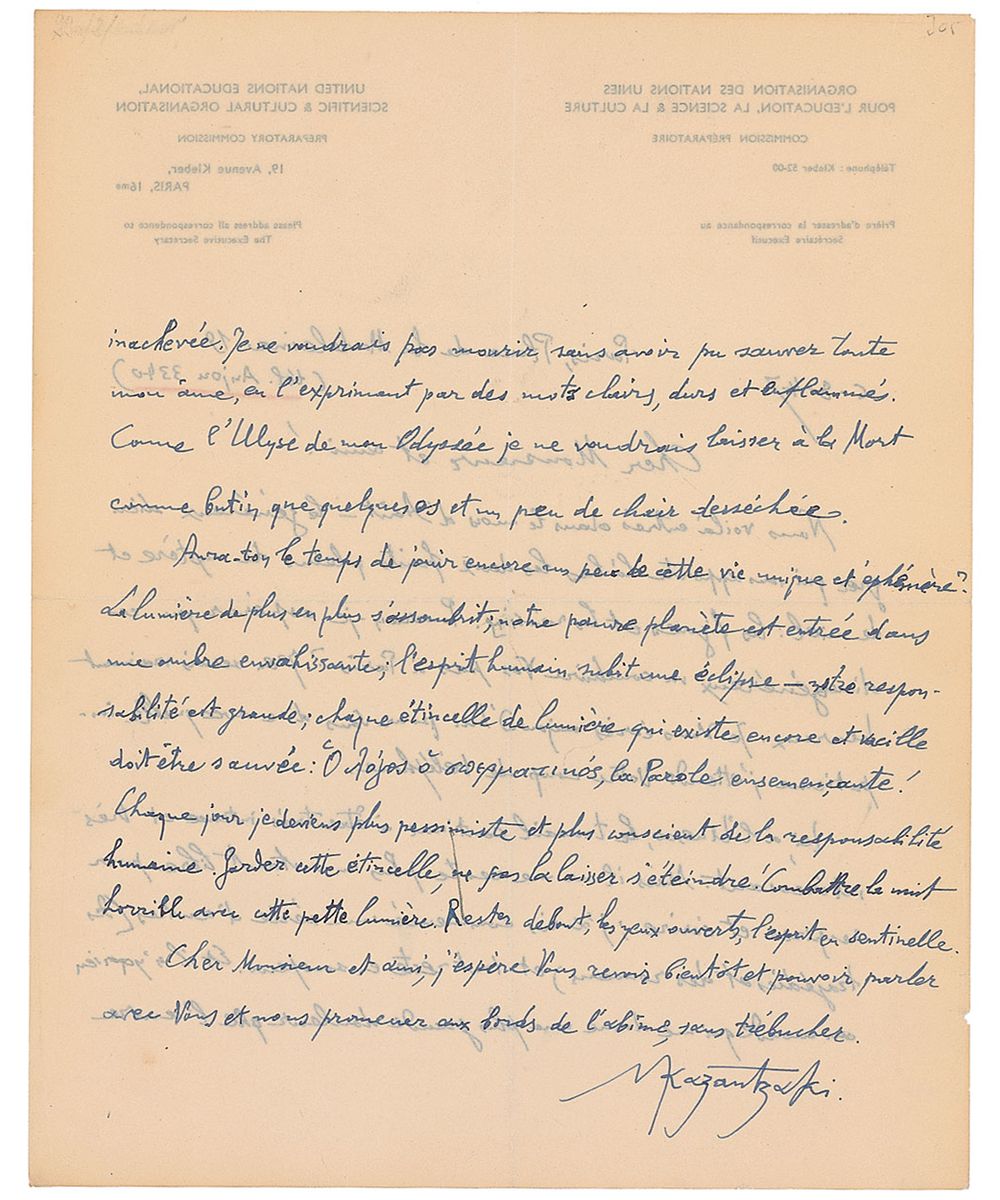 Jor
UNITED NATIONS EDUCATIONAL,
SCIENTIFIC & CULTURAL ORGANISATION
PREPARATORY COMMISSION
19, Avenue Kleber,
PARIS, 16me
Please address all correspondence to
The Executive Secretary
ORGANISATION DES NATIONS UNIES
POUR L'EDUCATION, LA SCIENCE & LA CULTURE
COMMISSION PRÉPARATOIRE
Téléphone : Kleber 52-00
Prière d'adresser la correspondance au
Secrétaire Executif
inachevée. Je ne voudrais pas mourir sans avoir pu sauver toute
mon âme, en l'exprimant par des mots clairs, durs et enflammés.
Comme l'Ulyse de mon Odyssée je ne voudrais laisser à la Mort
comme butin que quelques os et un peu de chair desséchée.
Aura-t-on le temps de jouir encore un peu de cette vie unique et éphémère?
La lumière de plus en plus s'assombrit; notre pauvre planète est entrée dans
une ombre envahissante; l'esprit humain subit une éclipse — notre respon-
sabilité est grande; chaque étincelle de lumière qui existe encore et vacille
doit être sauvée: Ὁ λόγος ὁ σπερματικός, la Parole ensemençante!
Chaque jour je deviens plus pessimiste et plus conscient de la responsabilité
humaine. Garder cette étincelle, ne pas la laisser s'éteindre! Combattre la nuit
horrible avec cette petite lumière. Rester debout, les yeux ouverts, l'esprit en sentinelle.
Cher Monsieur et ami, j'espère Vous revoir bientôt et pouvoir parler
avec Vous et nous promener aux bords de l'abîme, sans trébucher.
NKazantzaki.